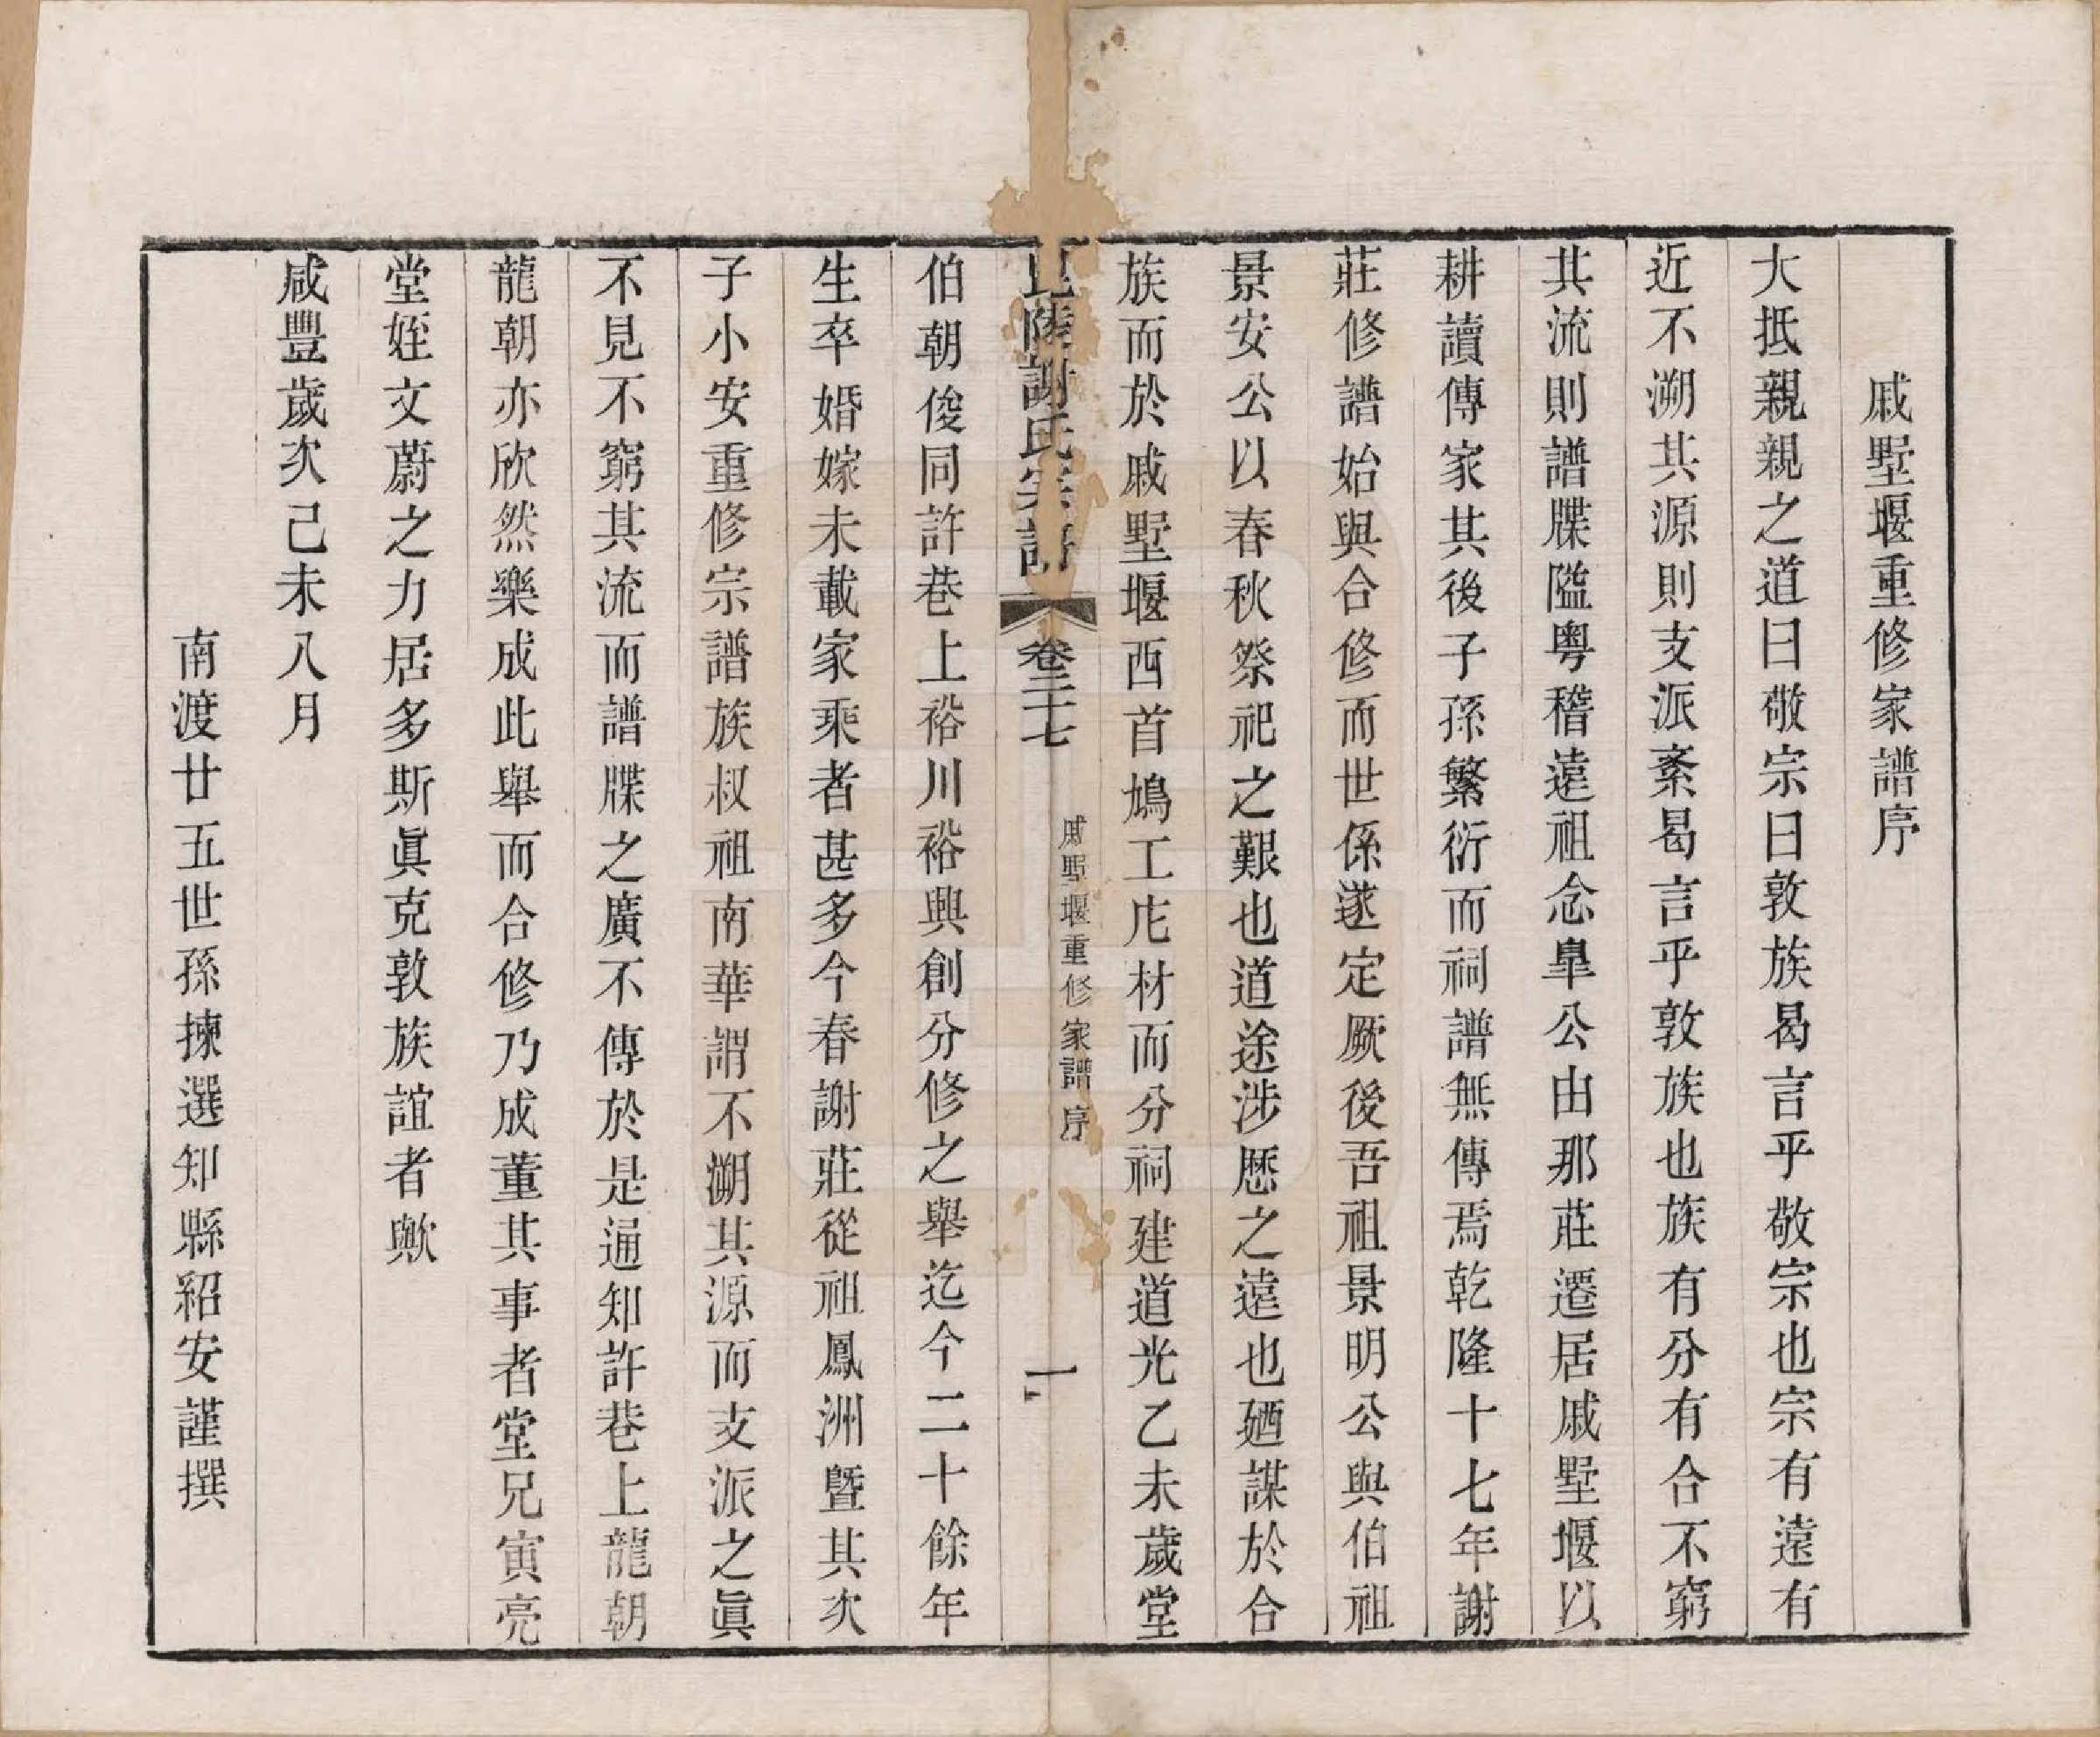 戚墅堰重修家譜序
大抵親親之道曰敬宗曰敦族曷言乎敬宗也宗有遠有
近不溯其源則支派紊曷言乎敦族也族有分有合不窮
其流則譜牒隘粤稽遠祖念臯公由那莊遷居戚墅堰以
耕讀傳家其後子孫繁衍而祠譜無傳焉乾隆十七年謝
莊修譜始與合修而世係遂定厥後吾祖景明公與伯祖
景安公以春秋祭祀之艱也道途涉歷之遠也廼謀於合
族而於戚墅堰西首鳩工庀材而分祠建道光乙未歲堂
毘陵謝氏宗譜
卷三十七
戚墅堰重修家譜序
一
伯朝俊同許巷上裕川裕興創分修之舉迄今二十餘年
生卒婚嫁未載家乘者甚多今春謝莊從祖鳳洲暨其次
子小安重修宗譜族叔祖南華謂不溯其源而支派之眞
不見不窮其流而譜牒之廣不傳於是通知許巷上龍朝
龍朝亦欣然樂成此舉而合修乃成董其事者堂兄寅亮
堂姪文蔚之力居多斯眞克敦族誼者歟
咸豐歲次己未八月
南渡廿五世孫揀選知縣紹安謹撰